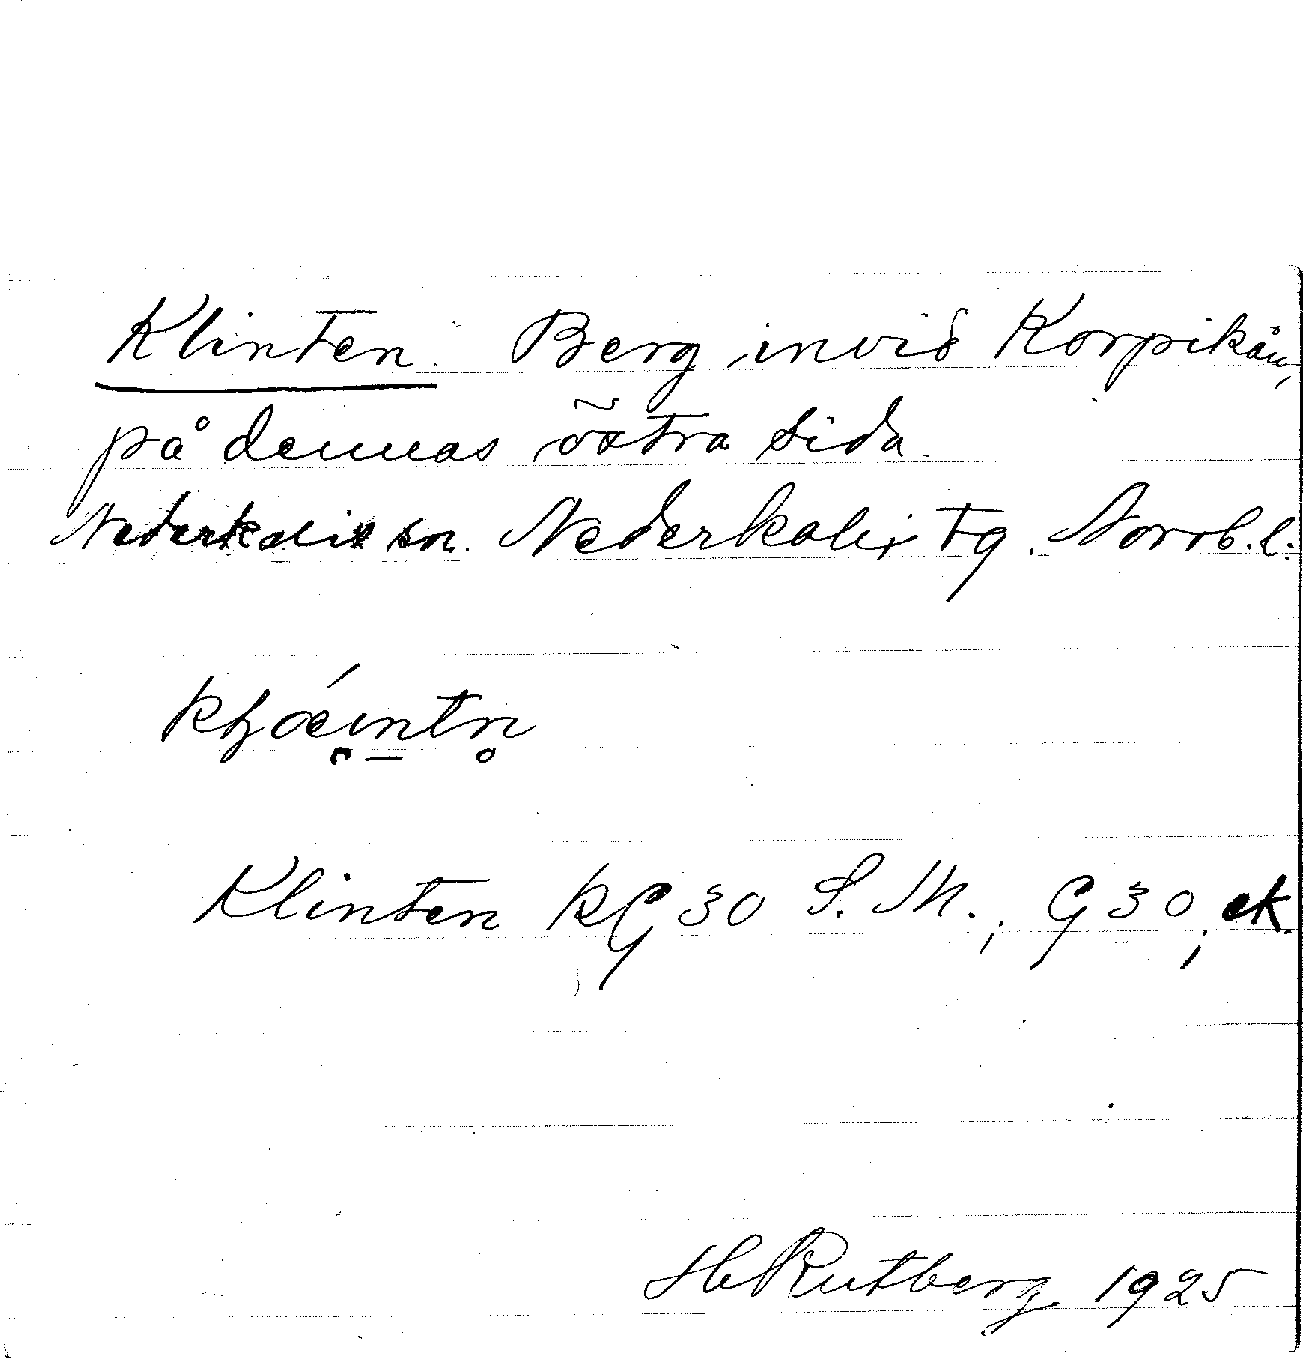 Klinten. Berg invid Korpikån,
på dennas östra sida.
Nederkalix sn. Nederkalix tg. Norrb. l.
Klinten KG 30 S. M.; G 30; ek.
H Rutberg 1925